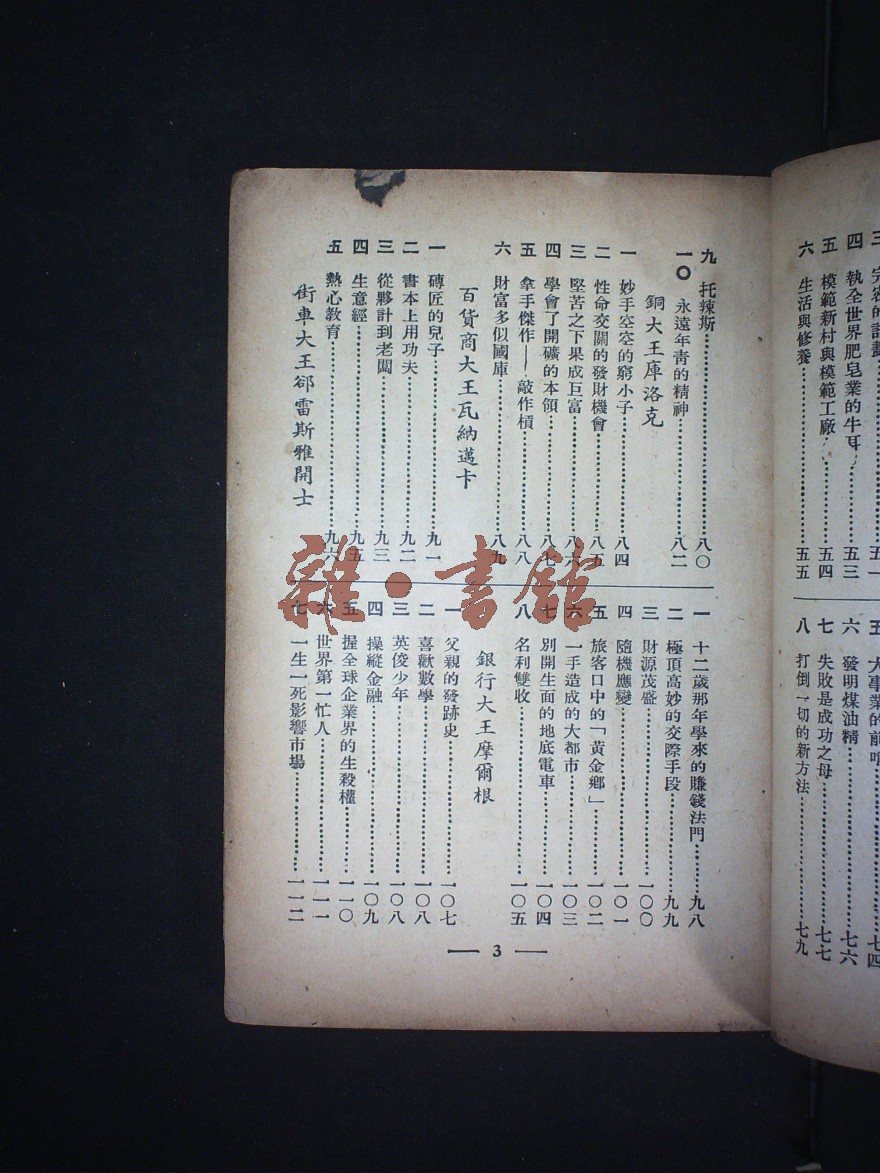 三
四 執全世界肥皂業的牛耳……五三
五 模範新村與模範工廠……五四
六 生活與修養……五五
六 發明煤油精……七六
七 失敗是成功之母……七七
八 打倒一切的新方法……七九
九 托辣斯……八〇
一〇 永遠年青的精神……八二
銅大王庫洛克
一 妙手空空的窮小子……八四
二 性命交關的發財機會……八五
三 堅苦之下果成巨富……八六
四 學會了開礦的本領……八七
五 拿手傑作——敲作槓……八八
六 財富多似國庫……八九
百貨商大王瓦納邁卡
一 磚匠的兒子……九一
二 書本上用功夫……九二
三 從夥計到老闆……九三
四 生意經……九五
五 熱心教育……九六
街車大王郤雷斯雅開士
一 十二歲那年學來的賺錢法門……九八
二 極頂高妙的交際手段……九九
三 財源茂盛……一〇〇
四 隨機應變……一〇一
五 旅客口中的「黃金鄉」……一〇二
六 一手造成的大都市……一〇三
七 別開生面的地底電車……一〇四
八 名利雙收……一〇五
銀行大王摩爾根
一 父親的發跡史……一〇七
二 喜歡數學……一〇八
三 英俊少年……一〇八
四 操縱金融……一〇九
五 握全球企業界的生殺權……一一〇
六 世界第一忙人……一一一
七 一生一死影響市場……一一二
— 3 —
雜·書館